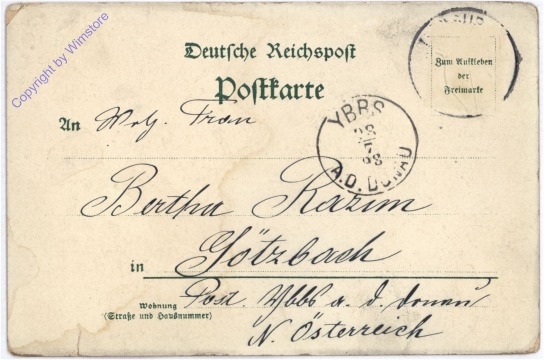 Copyright by Wimstore
Deutsche Reichspost
Postkarte
Zum Aufkleben
der
Freimarke
YBRS
A.D. DONAU
An Wolg. Frau
Bertha Razim
Götzbach
in
Post. Ybbs a. d. Donau
Wohnung
(Straße und Hausnummer)
N. Österreich